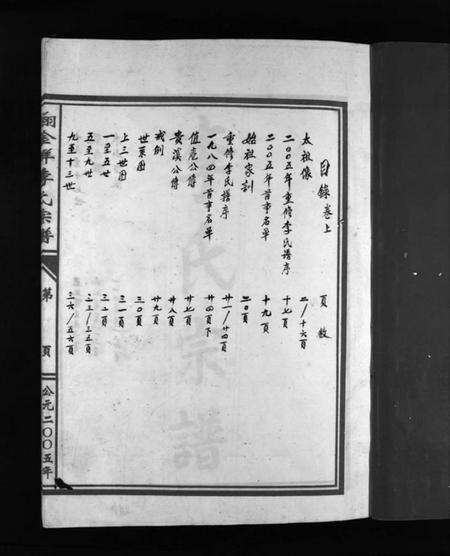 目錄卷上 頁數
太祖像 二/十六頁
二〇〇五年重修李氏譜序 十七頁
二〇〇五年首事名單 十九頁
始祖家訓 二〇頁
重修李氏譜序 廿一/廿四頁
一九八四年首事名單 廿四頁下
值庵公傳 廿七頁
貴溪公傳 廿八頁
戒例 廿九頁
世系图 三〇頁
上三世图 三一頁
一至五世 三二頁
五至九世 三三/三五頁
九至十三世 三六/五六頁
李氏宗譜
第 頁
公元二〇〇五年
氏宗譜